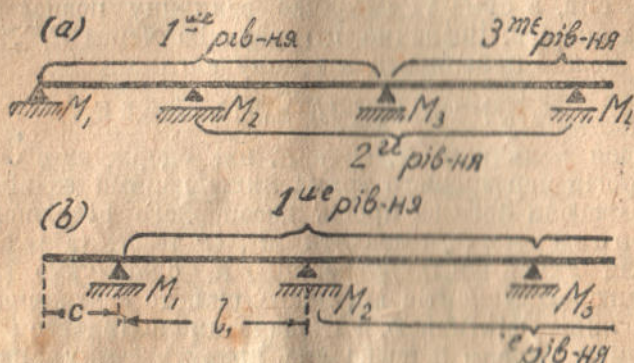 (a) 1ше рів-ня 3тє рів-ня
M₁ M₂ M₃
2ге рів-ня
1ше рів-ня
(b)
M₁ M₂ M₃
c l₁
рів-ня